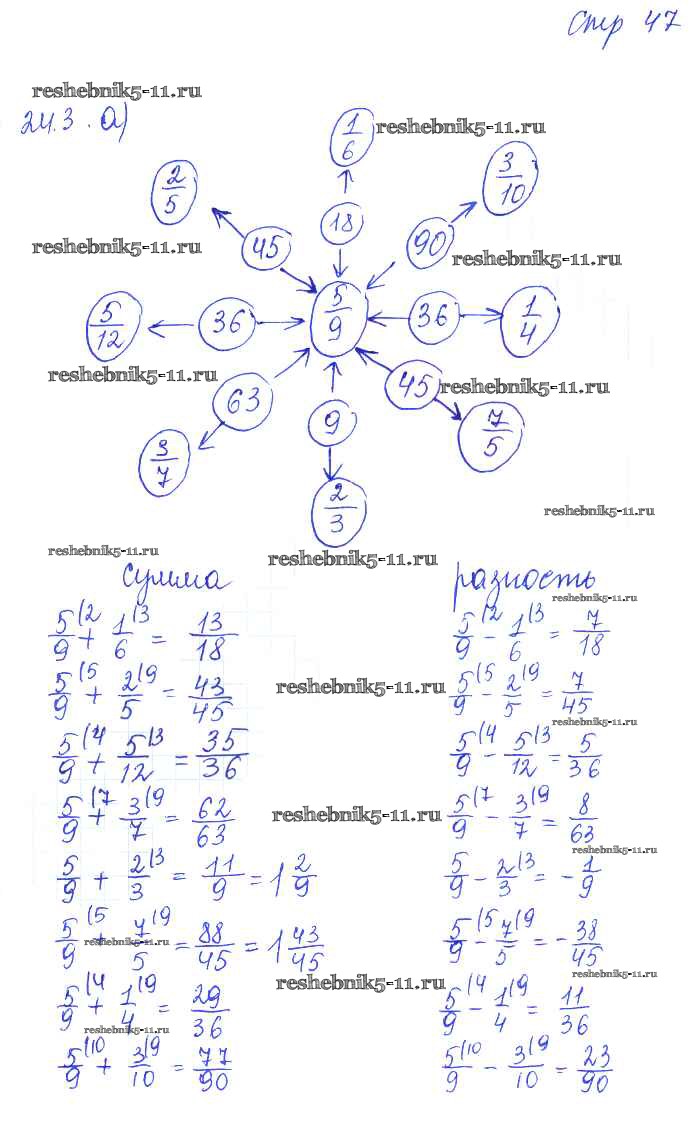 стр 47
reshebnik5-11.ru
24.3. а)
1/6
reshebnik5-11.ru
2/5
3/10
18
reshebnik5-11.ru
45
90
reshebnik5-11.ru
5/12
36
5/9
36
1/4
reshebnik5-11.ru
63
45
reshebnik5-11.ru
9
3/7
7/5
2/3
reshebnik5-11.ru
reshebnik5-11.ru
reshebnik5-11.ru
сумма
разность
reshebnik5-11.ru
5/9 (2 + 1/6 (3 = 13/18
5/9 (2 - 1/6 (3 = 7/18
5/9 (5 + 2/5 (9 = 43/45
reshebnik5-11.ru
5/9 (5 - 2/5 (9 = 7/45
reshebnik5-11.ru
5/9 (4 + 5/12 (3 = 35/36
5/9 (4 - 5/12 (3 = 5/36
5/9 (7 + 3/7 (9 = 62/63
reshebnik5-11.ru
5/9 (7 - 3/7 (9 = 8/63
reshebnik5-11.ru
5/9 + 2/3 (3 = 11/9 = 1 2/9
5/9 - 2/3 (3 = - 1/9
5/9 (5 + 7/5 (9 = 88/45 = 1 43/45
reshebnik5-11.ru
5/9 (5 - 7/5 (9 = - 38/45
reshebnik5-11.ru
reshebnik5-11.ru
5/9 (4 + 1/4 (9 = 29/36
reshebnik5-11.ru
5/9 (4 - 1/4 (9 = 11/36
reshebnik5-11.ru
5/9 (10 + 3/10 (9 = 77/90
5/9 (10 - 3/10 (9 = 23/90